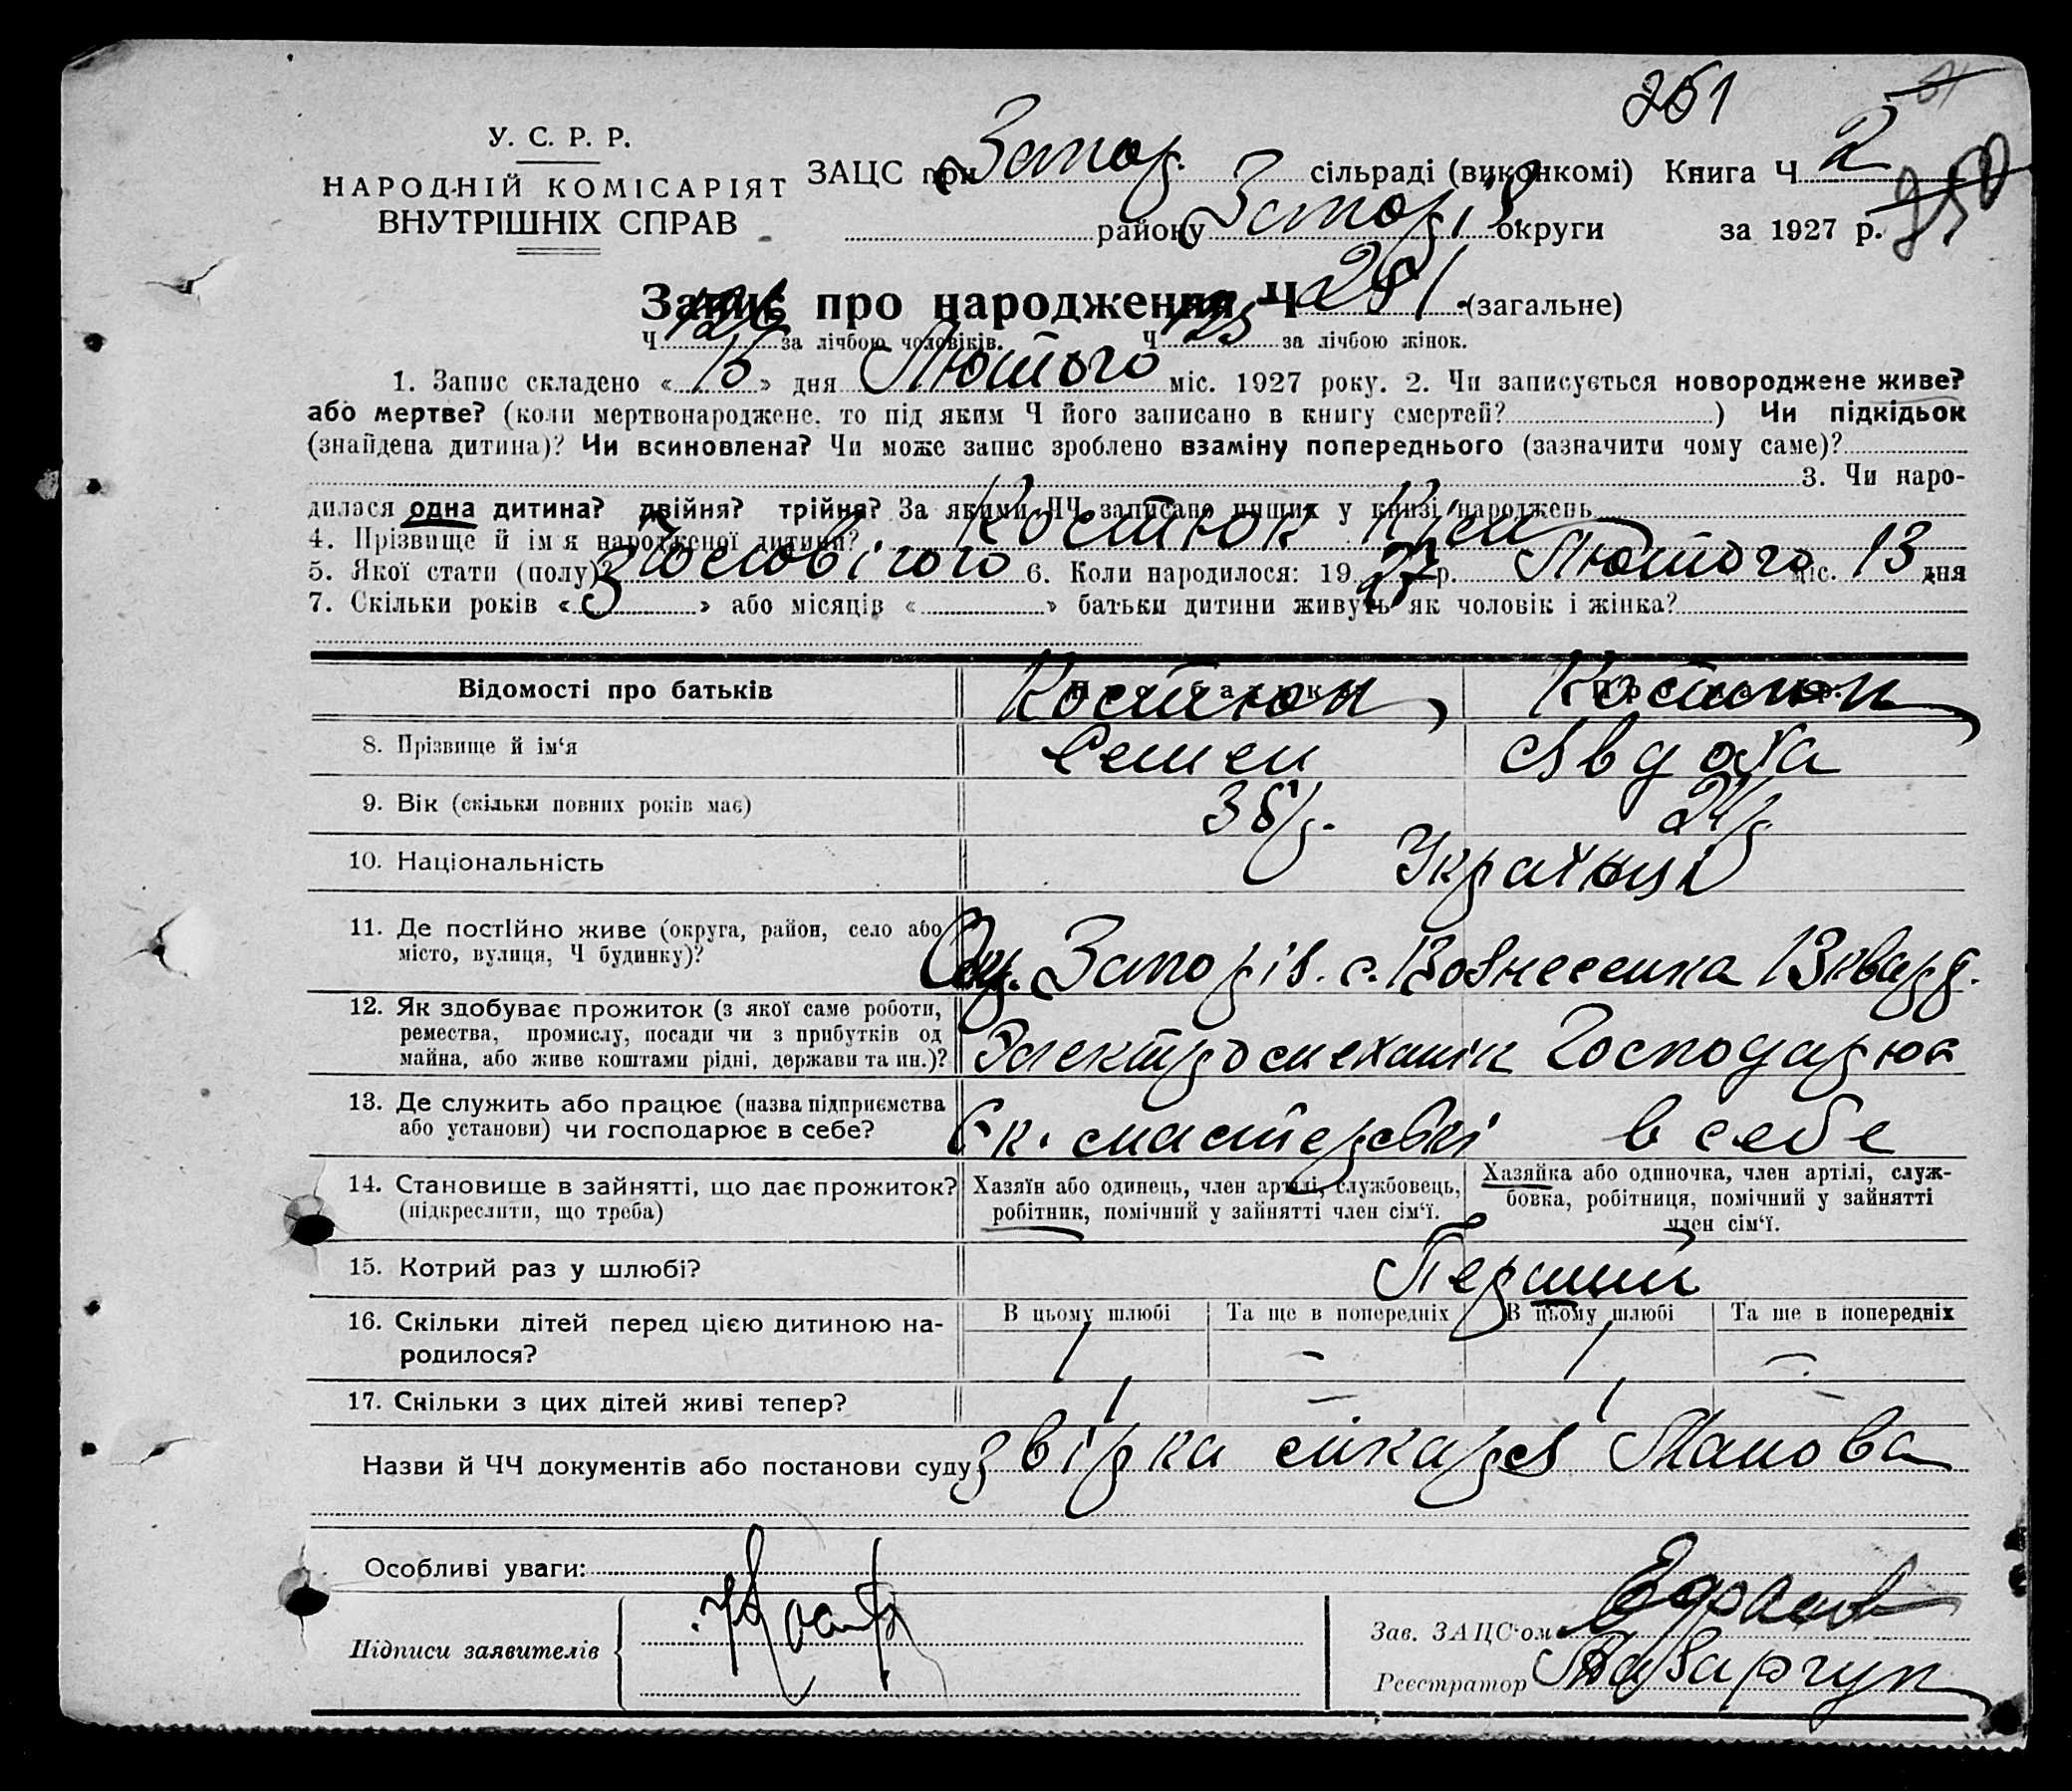 251
У. С. Р. Р.
НАРОДНІЙ КОМІСАРІЯТ
ВНУТРІШНІХ СПРАВ
ЗАЦС при Запор. сільраді (виконкомі) Книга Ч 2
району Запоріз. округи за 1927 р. 250
Запис про народження Ч 251 (загальне)
Ч 126 за лічбою чоловіків. Ч 125 за лічбою жінок.
1. Запис складено « 15 » дня Лютого міс. 1927 року. 2. Чи записується новороджене живе?
або мертве? (коли мертвонароджене, то під яким Ч його записано в книгу смертей? ) Чи підкідьок
(знайдена дитина)? Чи всиновлена? Чи може запис зроблено взаміну попереднього (зазначити чому саме)?
3. Чи наро-
дилася одна дитина? двійня? трійня? За якими ЧЧ записано инших у книзі народжень
4. Прізвище й ім'я народженої дитини? Костюк
5. Якої стати (полу)? Чоловічого 6. Коли народилося: 1927 р. Лютого міс. 13 дня
7. Скільки років « 3 » або місяців « » батьки дитини живуть як чоловік і жінка?
Відомості про батьків
Костюк Костюк
8. Прізвище й ім'я Семен Явдоха
9. Вік (скільки повних років має) 24 р
10. Національність Українці
11. Де постійно живе (округа, район, село або
місто, вулиця, Ч будинку)? Окр. Запоріз. с. Вознесенка 13 квар
12. Як здобуває прожиток (з якої саме роботи,
ремества, промислу, посади чи з прибутків од
майна, або живе коштами рідні, держави та ин.)? Электромеханік Господарює
13. Де служить або працює (назва підприємства
або установи) чи господарює в себе? Ек. мастерські в себе
14. Становище в зайнятті, що дає прожиток?
(підкреслити, що треба)
Хазяїн або одинець, член артілі, службовець,
робітник, помічний у зайнятті член сім'ї.
Хазяйка або одиночка, член артілі, служ-
бовка, робітниця, помічний у зайнятті
член сім'ї.
15. Котрий раз у шлюбі? Перший
В цьому шлюбі Та ще в попередніх В цьому шлюбі Та ще в попередніх
16. Скільки дітей перед цією дитиною на-
родилося? 1 — 1 —
17. Скільки з цих дітей живі тепер? 1 — 1 —
Назви й ЧЧ документів або постанови суду звірка
Особливі уваги:
Підписи заявителів
Зав. ЗАЦС'ом
Реєстратор